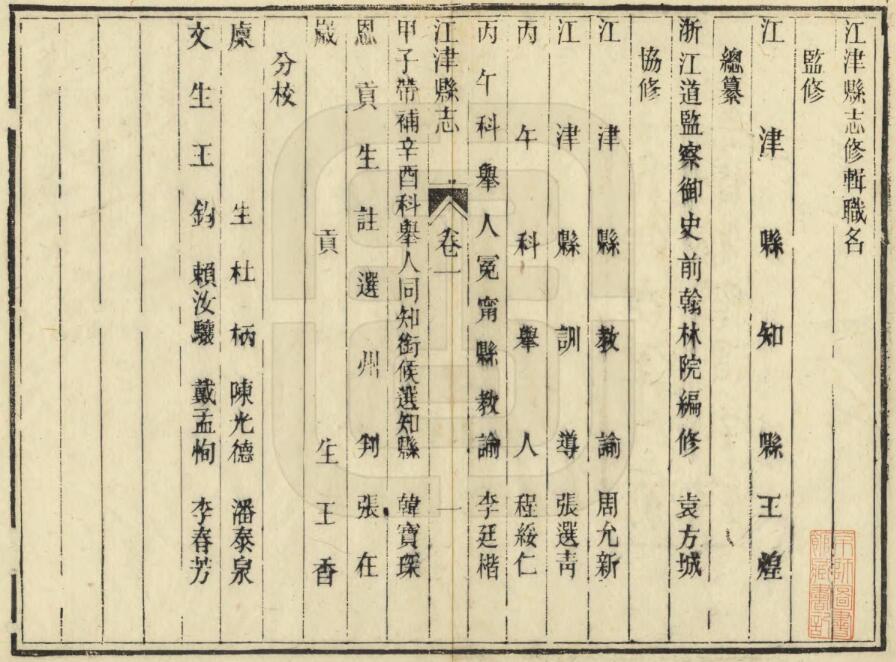 江津縣志修輯職名
監修
江津縣知縣王煌
總纂
浙江道監察御史前翰林院編修 袁方城
協修
江津縣教諭 周允新
江津縣訓導 張選青
丙午科舉人 程綬仁
丙午科舉人冕甯縣教諭 李廷楷
江津縣志 卷一 一
甲子帶補辛酉科舉人同知銜候選知縣 韓寶琛
恩貢生註選州判 張在
歲貢生王香
分校
廩生杜柄 陳光德 潘泰泉
文生王鈞 賴汝驤 戴孟恂 李春芳